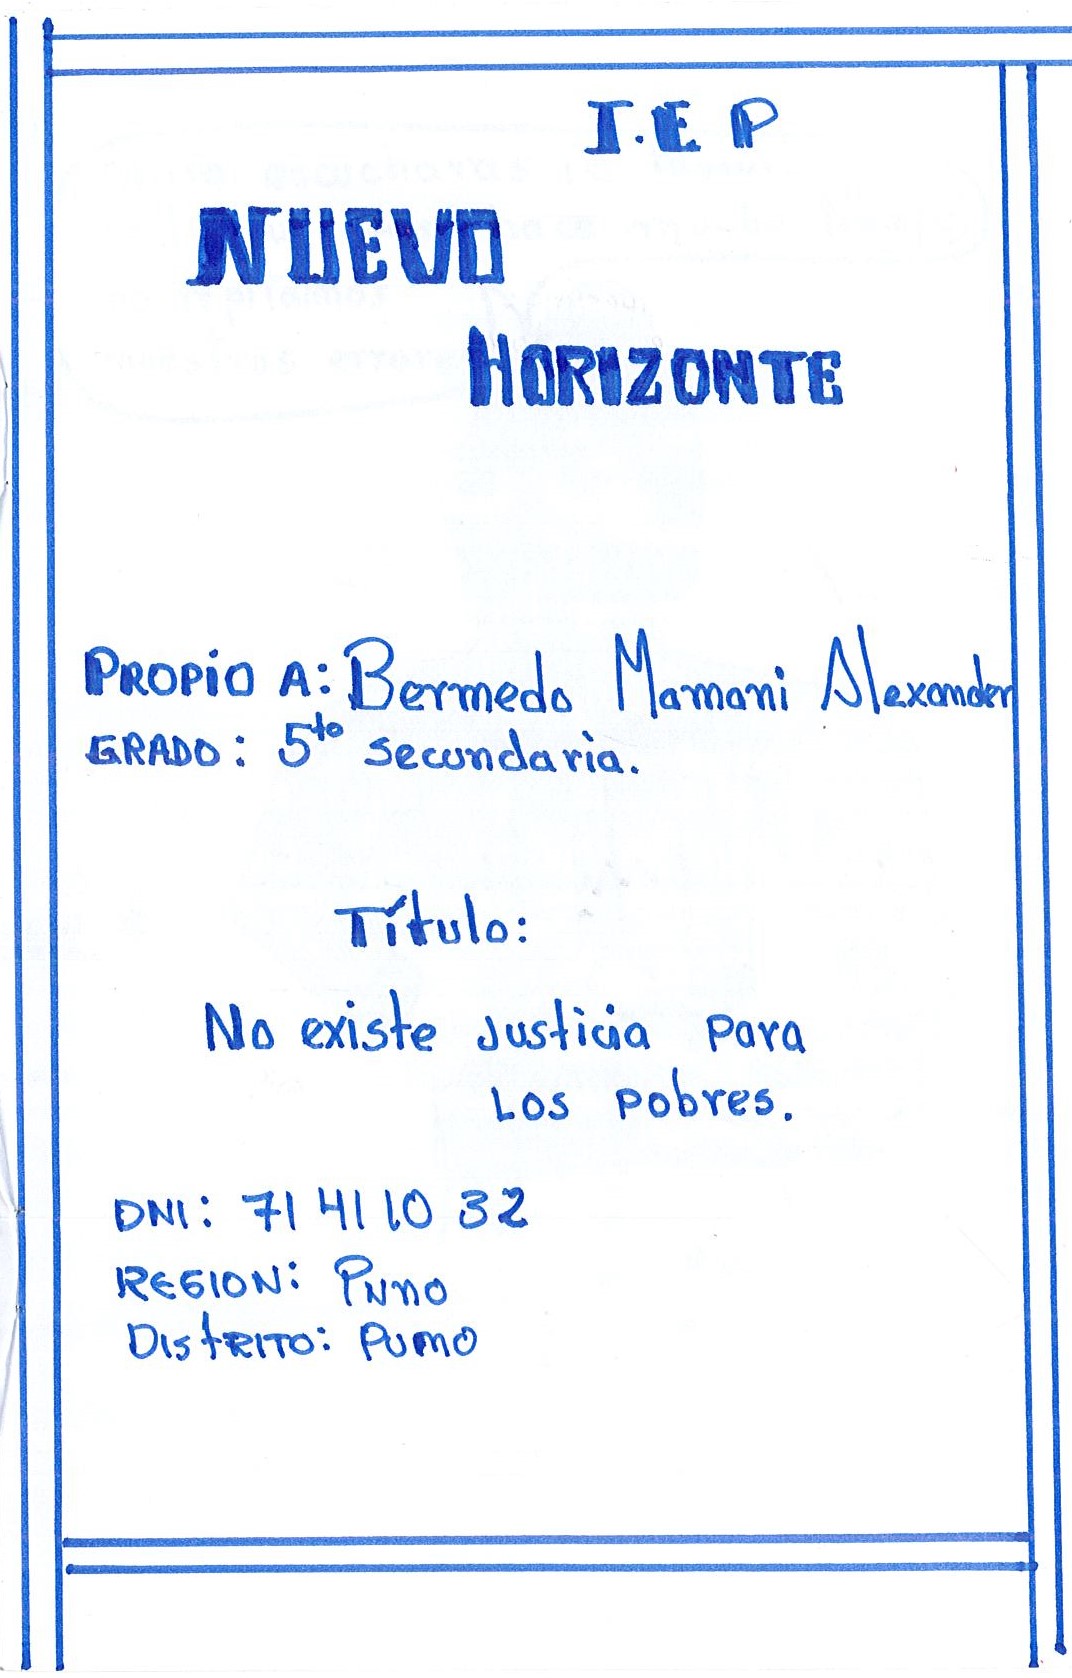 I.E P
NUEVO
HORIZONTE
PROPiO A: Bermedo Mamani Alexander
GRADO: 5to secundaria.
Título:
No existe Justicia Para
Los pobres.
DNI: 71 41 10 32
REGION: Puno
DistRITO: PUMO